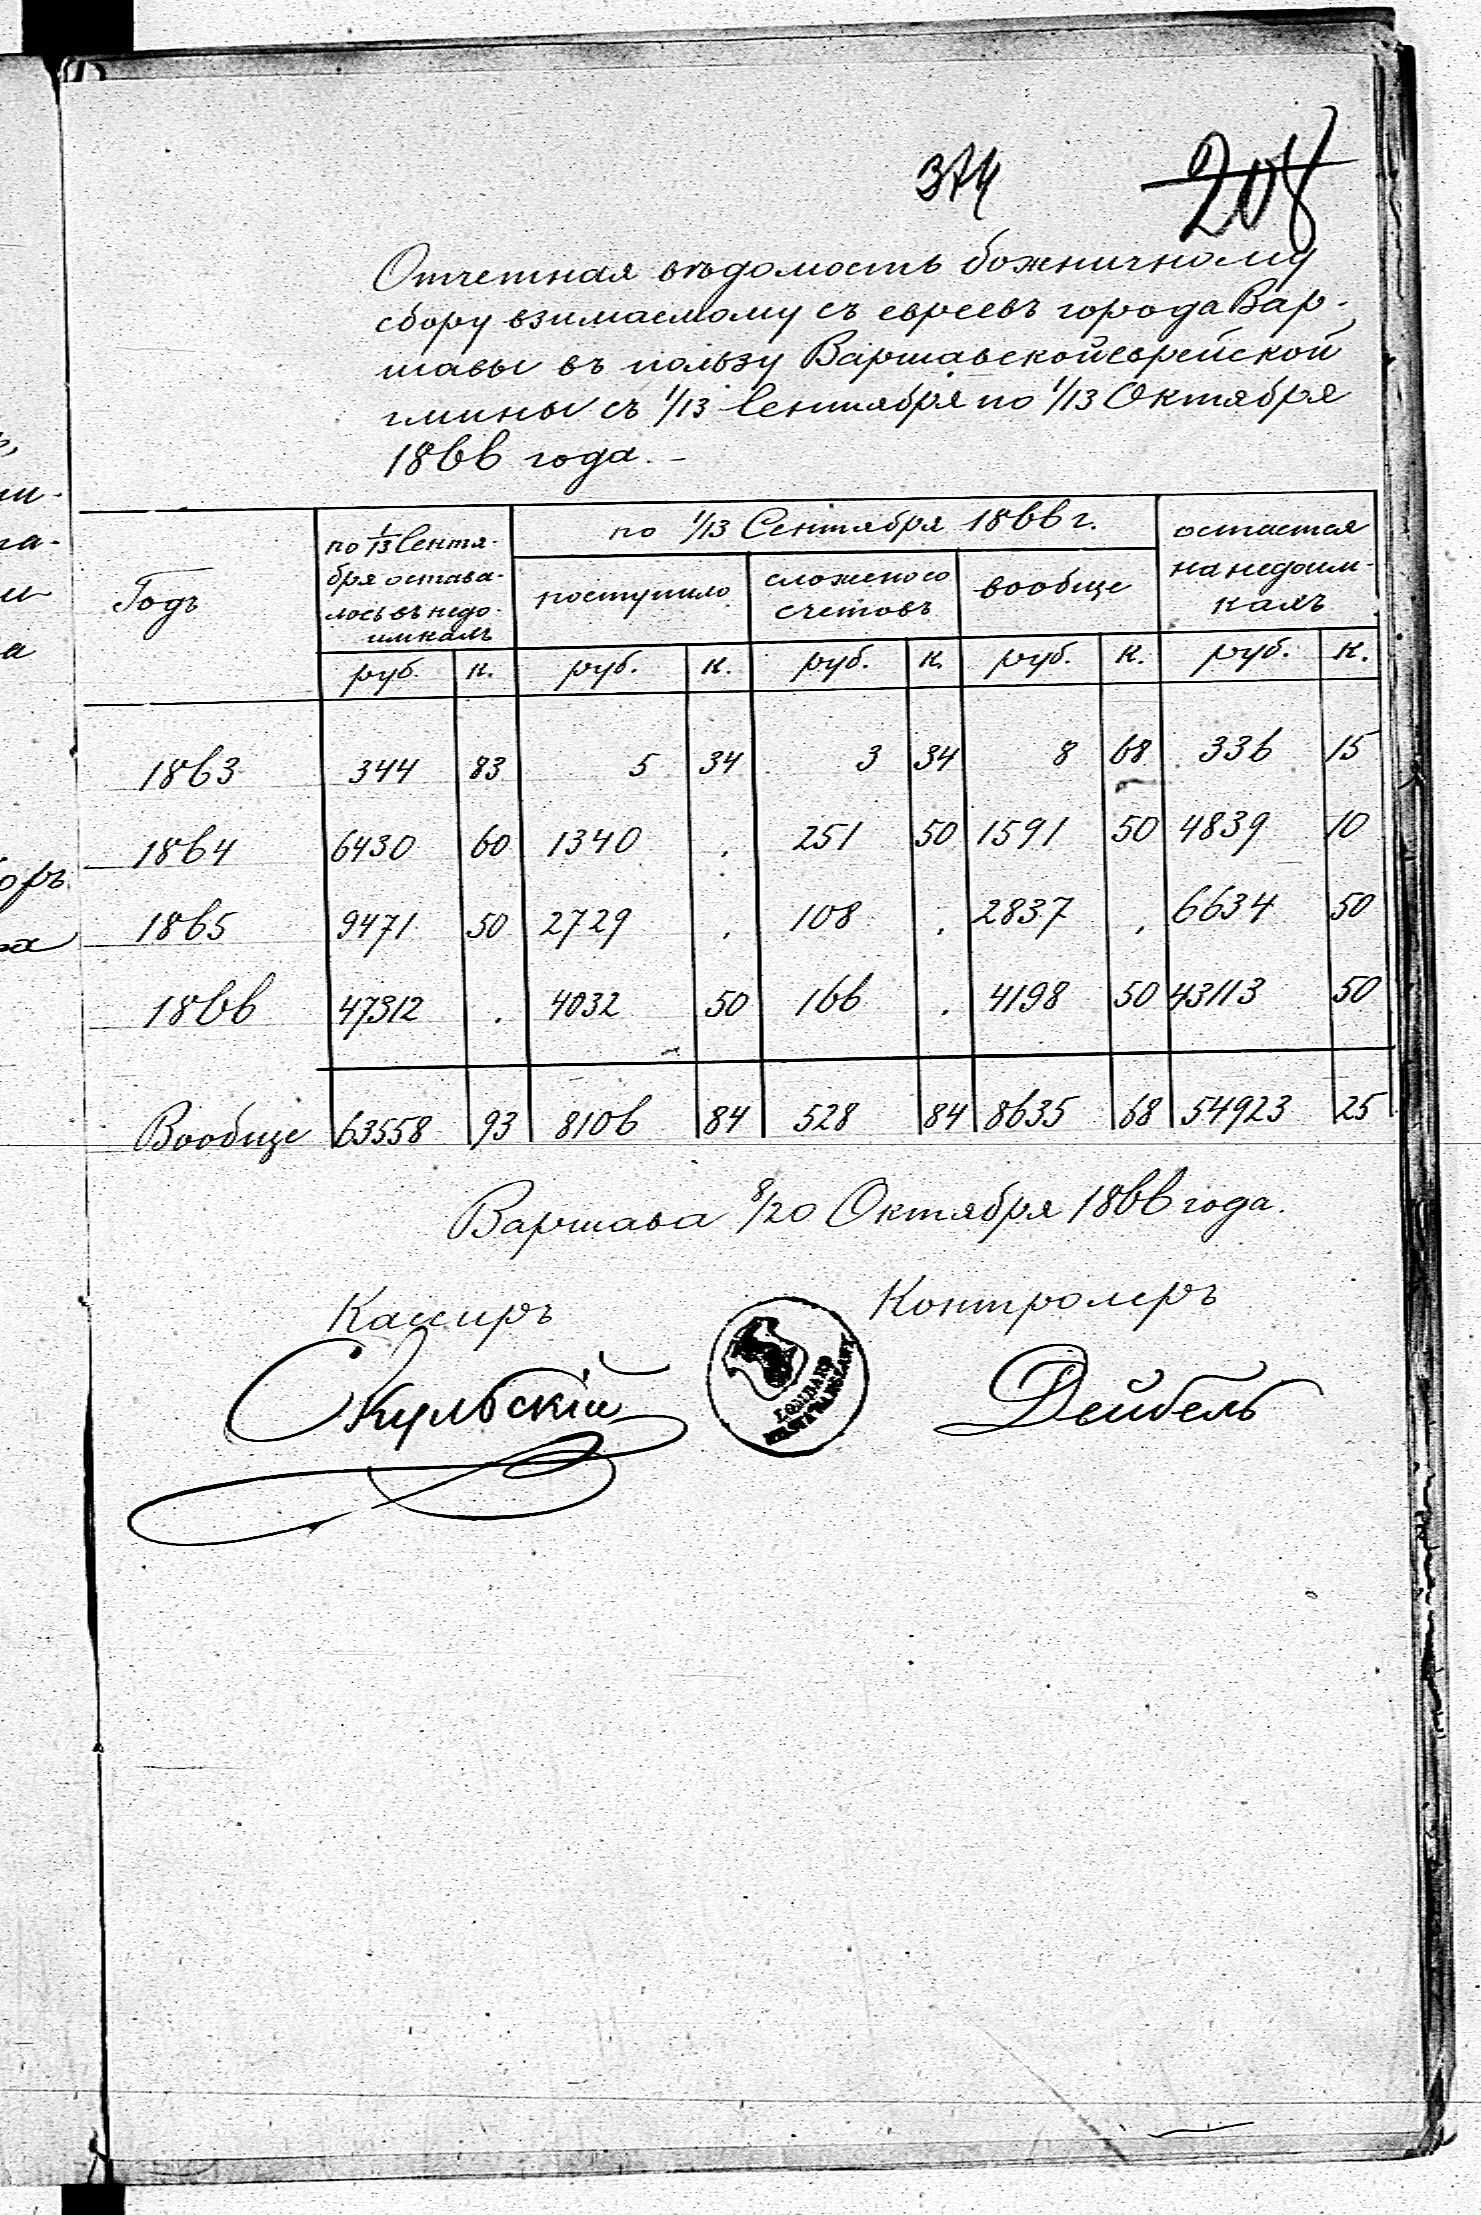 374 208
Отчетная вѣдомость божничному
сбору взимаемому съ евреевъ города Вар-
шавы въ пользу Варшавской еврейской
гмины съ 1/13 Сентября по 1/13 Октября
1866 года. -
Годъ | по 1/13 Сентя- | по 1/13 Сентября 1866 г. | остается
бря остава- | поступило | сложено со | вообще | на недоим-
лось въ недо- | счетовъ | кахъ
имкахъ
руб. | к. | руб. | к. | руб. | к. | руб. | к. | руб. | к.
1863 | 344 | 83 | 5 | 34 | 3 | 34 | 8 | 68 | 336 | 15
1864 | 6430 | 60 | 1340 | . | 251 | 50 | 1591 | 50 | 4839 | 10
1865 | 9471 | 50 | 2729 | . | 108 | . | 2837 | . | 6634 | 50
1866 | 47312 | . | 4032 | 50 | 166 | . | 4198 | 50 | 43113 | 50
Вообще | 63558 | 93 | 8106 | 84 | 528 | 84 | 8635 | 68 | 54923 | 25
Варшава 8/20 Октября 1866 года.
Кассиръ Контролеръ
Скульскій Дейбель
LOMBARD
MIASTA WARSZAWY